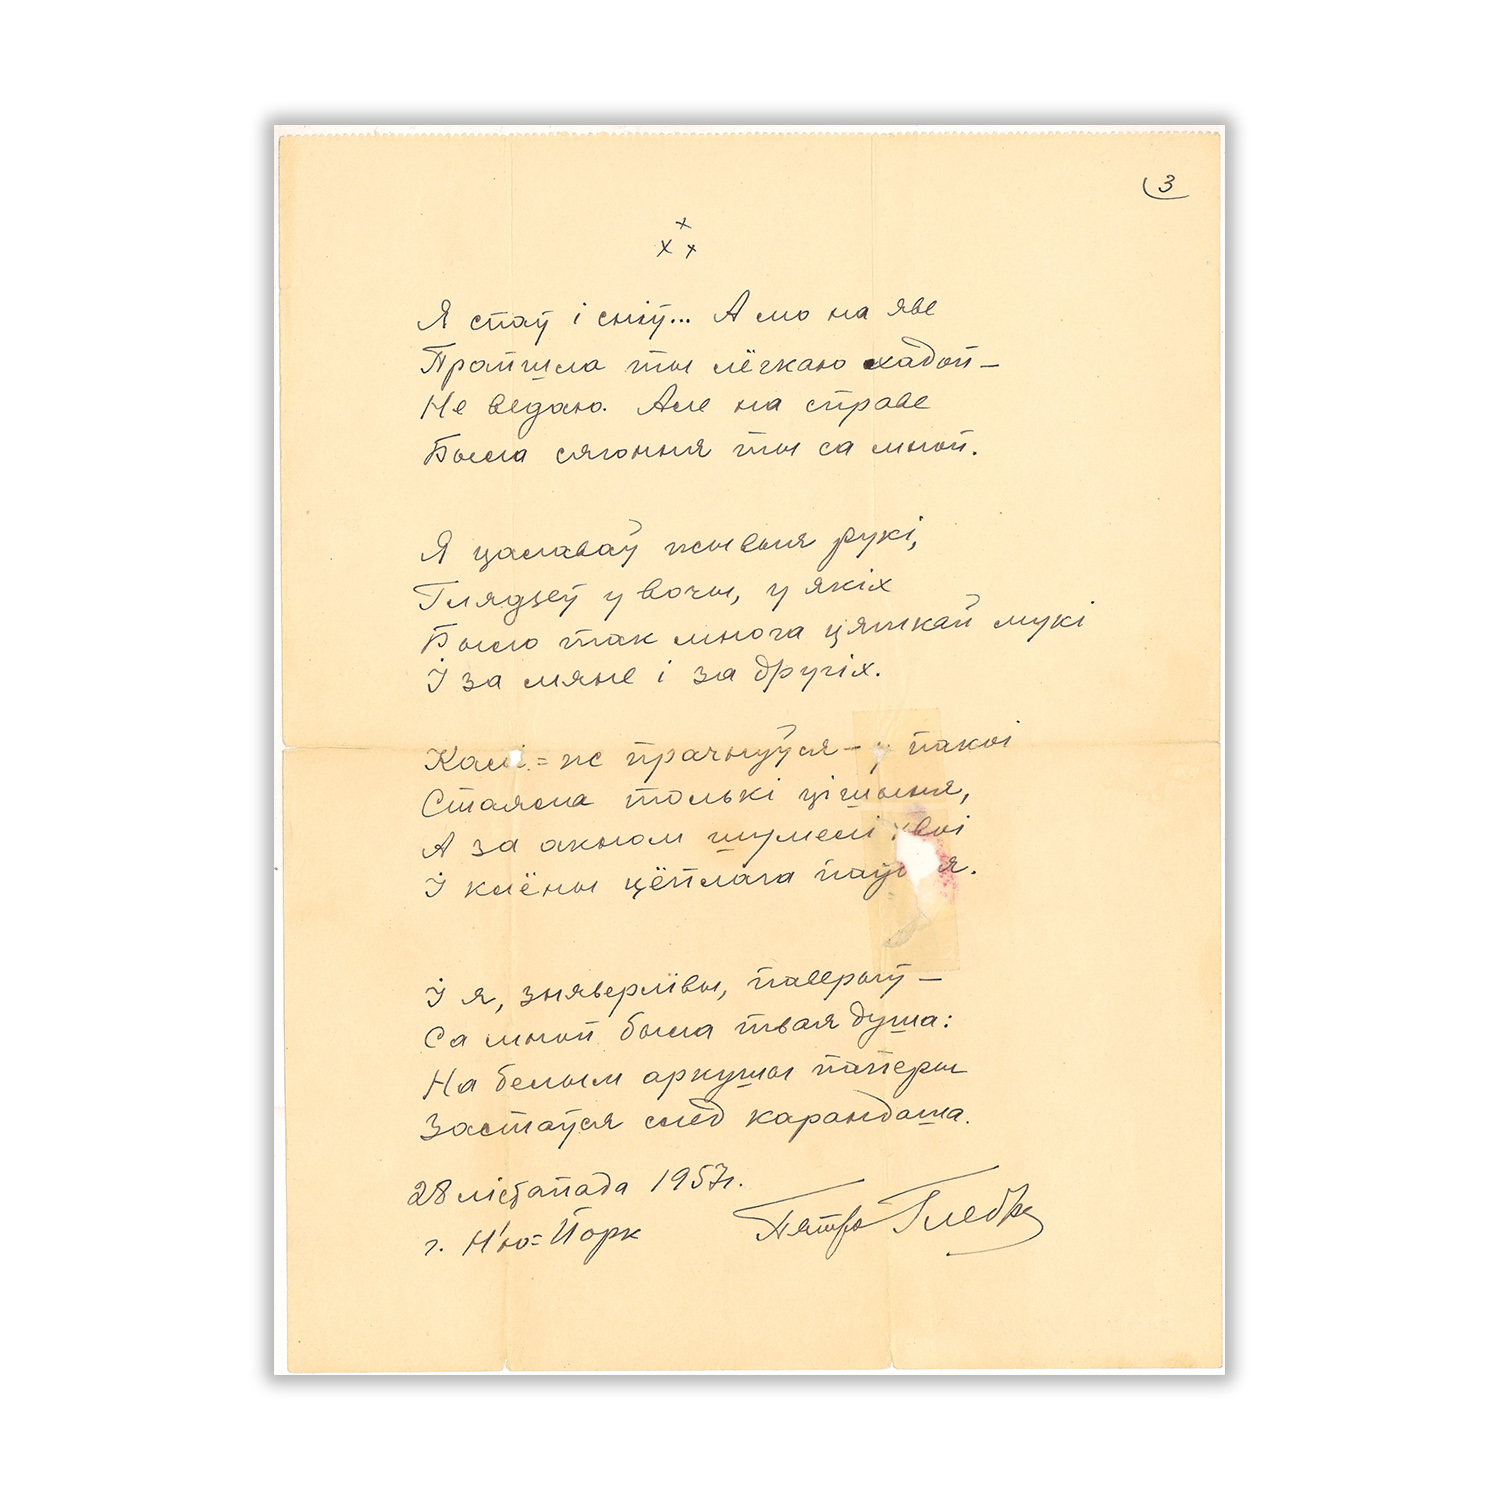 3
x
x x
Я спаў і сніў... А мо на яве
Прайшла ты лёгкаю хадой —
Не ведаю. Але на справе
Была сягоння ты са мной.
Я цалаваў жывыя рукі,
Глядзеў у вочы, у якіх
Было так многа цяжкай мукі
І за мяне і за другіх.
Калі=ж прачнуўся — у пакоі
Стаяла толькі цішыня,
А за акном шумелі хвоі
І клёны цёплага
І я, зняверлівы, паверыў —
Са мной была твая душа:
На белым аркушы паперы
Застаўся след карандаша.
28 лістапада 1957г.
г. Н'ю=Йорк Пятро Глебка